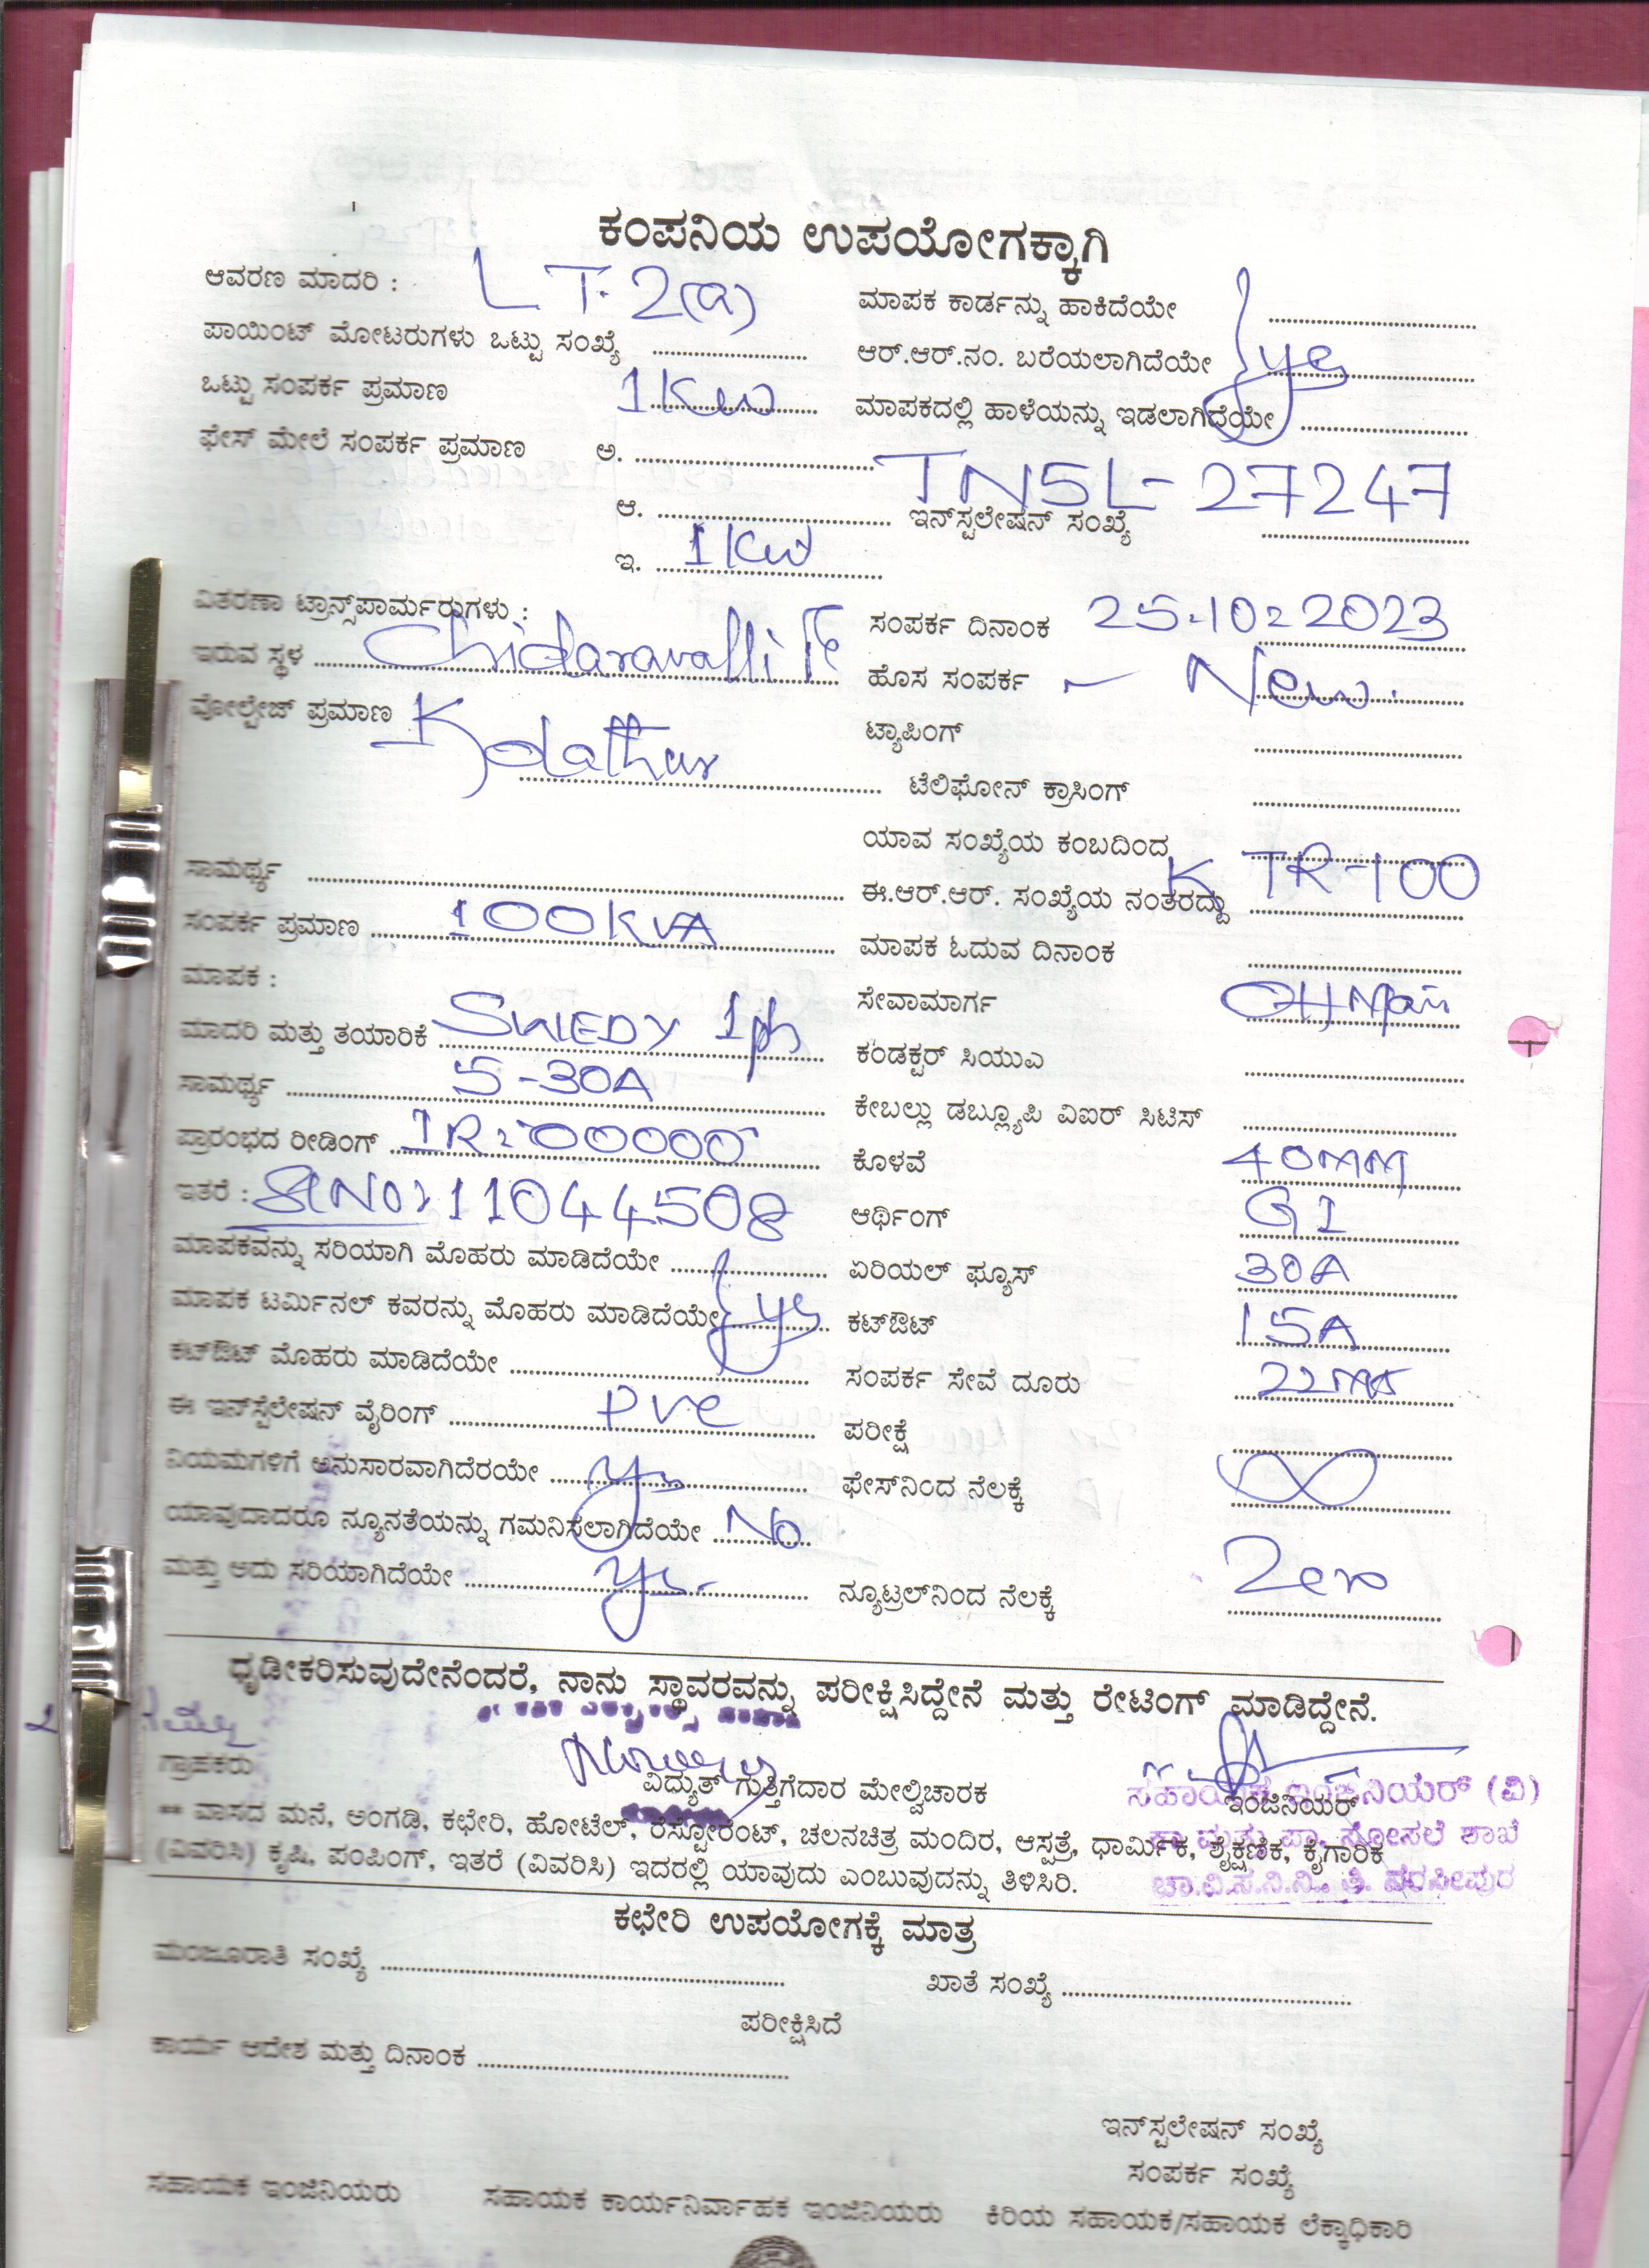 ಕಂಪನಿಯ ಉಪಯೋಗಕ್ಕಾಗಿ
ಆವರಣ ಮಾದರಿ : LT-2(a)
ಮಾಪಕ ಕಾರ್ಡನ್ನು ಹಾಕಿದೆಯೇ
ಪಾಯಿಂಟ್ ಮೋಟರುಗಳು ಒಟ್ಟು ಸಂಖ್ಯೆ
ಆರ್.ಆರ್.ನಂ. ಬರೆಯಲಾಗಿದೆಯೇ yes
ಒಟ್ಟು ಸಂಪರ್ಕ ಪ್ರಮಾಣ 1 Kw
ಮಾಪಕದಲ್ಲಿ ಹಾಳೆಯನ್ನು ಇಡಲಾಗಿದೆಯೇ
ಫೇಸ್ ಮೇಲೆ ಸಂಪರ್ಕ ಪ್ರಮಾಣ ಅ.
TN5L-27247
ಆ. ಇನ್‌ಸ್ಟಲೇಷನ್ ಸಂಖ್ಯೆ
ಇ. 1 Kw
ವಿತರಣಾ ಟ್ರಾನ್ಸ್‌ಪಾರ್ಮರುಗಳು :
ಸಂಪರ್ಕ ದಿನಾಂಕ 25-10-2023
ಇರುವ ಸ್ಥಳ Chidaravalli
ಹೊಸ ಸಂಪರ್ಕ - New
ವೋಲ್ಟೇಜ್ ಪ್ರಮಾಣ Kolathur
ಟ್ಯಾಪಿಂಗ್
ಟೆಲಿಫೋನ್ ಕ್ರಾಸಿಂಗ್
ಯಾವ ಸಂಖ್ಯೆಯ ಕಂಬದಿಂದ
ಸಾಮರ್ಥ್ಯ
ಈ.ಆರ್.ಆರ್. ಸಂಖ್ಯೆಯ ನಂತರದ್ದು KTR-100
ಸಂಪರ್ಕ ಪ್ರಮಾಣ 100 KVA
ಮಾಪಕ ಓದುವ ದಿನಾಂಕ
ಮಾಪಕ :
ಸೇವಾಮಾರ್ಗ OH Main
ಮಾದರಿ ಮತ್ತು ತಯಾರಿಕೆ 1ph
ಕಂಡಕ್ಟರ್ ಸಿಯುಎ
ಸಾಮರ್ಥ್ಯ 5-30A
ಕೇಬಲ್ಲು ಡಬ್ಲ್ಯೂಪಿ ವಿಐರ್ ಸಿಟಿಸ್
ಪ್ರಾರಂಭದ ರೀಡಿಂಗ್ IR=00000
ಕೊಳವೆ 40MM
ಇತರೆ : Sl No: 11044508
ಆರ್ಥಿಂಗ್ GI
ಮಾಪಕವನ್ನು ಸರಿಯಾಗಿ ಮೊಹರು ಮಾಡಿದೆಯೇ
ಏರಿಯಲ್ ಫ್ಯೂಸ್ 30A
ಮಾಪಕ ಟರ್ಮಿನಲ್ ಕವರನ್ನು ಮೊಹರು ಮಾಡಿದೆಯೇ yes
ಕಟ್‌ಔಟ್ 15A
ಕಟ್‌ಔಟ್ ಮೊಹರು ಮಾಡಿದೆಯೇ
ಸಂಪರ್ಕ ಸೇವೆ ದೂರು 22
ಈ ಇನ್‌ಸ್ಟೆಲೇಷನ್ ವೈರಿಂಗ್ pvc
ಪರೀಕ್ಷೆ
ನಿಯಮಗಳಿಗೆ ಅನುಸಾರವಾಗಿದೆರಯೇ yes
ಫೇಸ್‌ನಿಂದ ನೆಲಕ್ಕೆ ∞
ಯಾವುದಾದರೂ ನ್ಯೂನತೆಯನ್ನು ಗಮನಿಸಲಾಗಿದೆಯೇ No
ಮತ್ತು ಅದು ಸರಿಯಾಗಿದೆಯೇ yes
ನ್ಯೂಟ್ರಲ್‌ನಿಂದ ನೆಲಕ್ಕೆ Zero
ಧೃಡೀಕರಿಸುವುದೇನೆಂದರೆ, ನಾನು ಸ್ಥಾವರವನ್ನು ಪರೀಕ್ಷಿಸಿದ್ದೇನೆ ಮತ್ತು ರೇಟಿಂಗ್ ಮಾಡಿದ್ದೇನೆ.
ಗ್ರಾಹಕರು
ವಿದ್ಯುತ್ ಗುತ್ತಿಗೆದಾರ ಮೇಲ್ವಿಚಾರಕ
ಇಂಜಿನಿಯರ್
ಸಹಾಯಕ ಇಂಜಿನಿಯರ್ (ವಿ)
** ವಾಸದ ಮನೆ, ಅಂಗಡಿ, ಕಛೇರಿ, ಹೋಟೆಲ್, ರೆಸ್ಟೋರೆಂಟ್, ಚಲನಚಿತ್ರ ಮಂದಿರ, ಆಸ್ಪತ್ರೆ, ಧಾರ್ಮಿಕ, ಶೈಕ್ಷಣಿಕ, ಕೈಗಾರಿಕೆ
(ವಿವರಿಸಿ) ಕೃಷಿ, ಪಂಪಿಂಗ್, ಇತರೆ (ವಿವರಿಸಿ) ಇದರಲ್ಲಿ ಯಾವುದು ಎಂಬುವುದನ್ನು ತಿಳಿಸಿರಿ.
ಕಛೇರಿ ಉಪಯೋಗಕ್ಕೆ ಮಾತ್ರ
ಮಂಜೂರಾತಿ ಸಂಖ್ಯೆ
ಖಾತೆ ಸಂಖ್ಯೆ
ಪರೀಕ್ಷಿಸಿದೆ
ಕಾರ್ಯ ಆದೇಶ ಮತ್ತು ದಿನಾಂಕ
ಇನ್‌ಸ್ಟಲೇಷನ್ ಸಂಖ್ಯೆ
ಸಂಪರ್ಕ ಸಂಖ್ಯೆ
ಸಹಾಯಕ ಇಂಜಿನಿಯರು
ಸಹಾಯಕ ಕಾರ್ಯನಿರ್ವಾಹಕ ಇಂಜಿನಿಯರು
ಕಿರಿಯ ಸಹಾಯಕ/ಸಹಾಯಕ ಲೆಕ್ಕಾಧಿಕಾರಿ